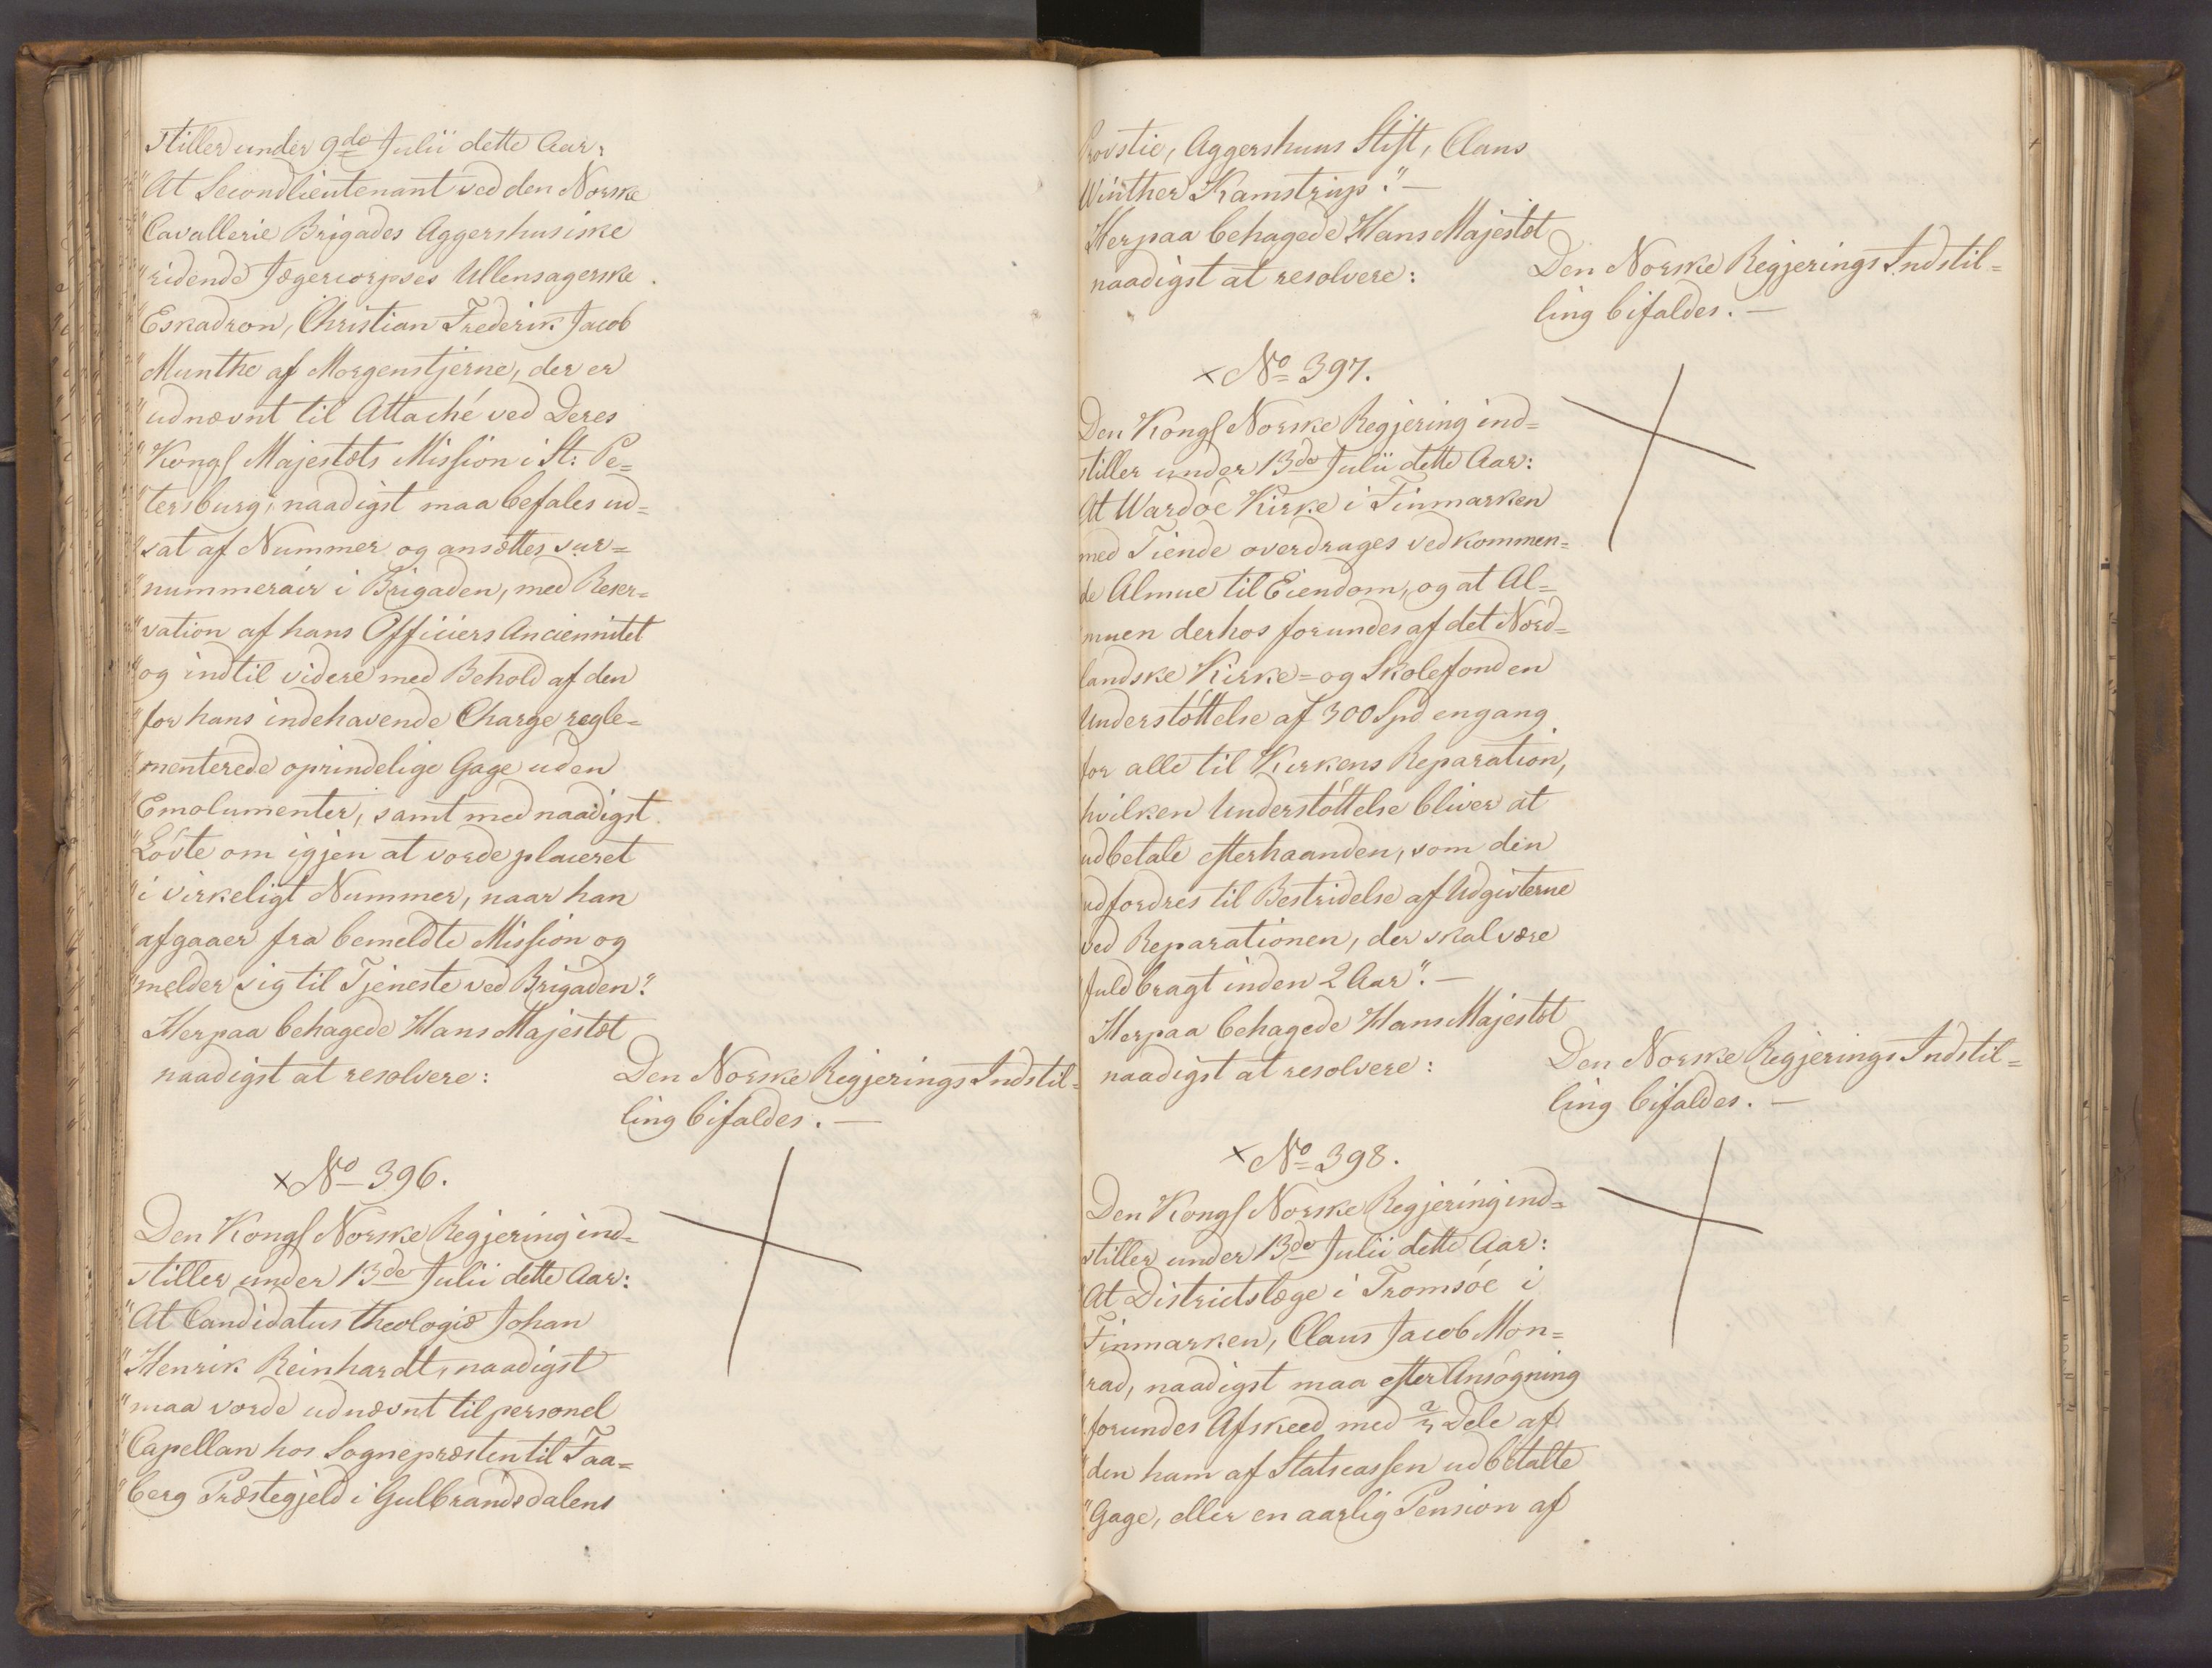 stiller under 9de Julii dette Aar:
"At Secondlieutenant ved den Norske
"Cavallerie Brigades Aggershusiske
"ridende Jægercorpses Ullensagerske
"Eskadron, Christian Frederik Jacob
"Munthe af Morgenstjerne, der er
"udnævnt til Attaché ved Deres
"Kongl Majestæts Mission i St: Pe=
"tersburg, naadigst maa befales ud=
"sat af Nummer og ansættes sur=
"nummerair i Brigaden, med Reser=
"vation af hans Officiers Anciennitet
"og indtil videre med Behold af den
"for hans indehavende Charge regle=
"menterede oprindelige Gage uden
"Emolumenter, samt med naadigst
"Løvte om igjen at vorde placeret
"i virkeligt Nummer, naar han
"afgaaer fra bemeldte Mission og
"melder sig til Tjeneste ved Brigaden".
Herpaa behagede Hans Majestæt
naadigst at resolvere:
Den Norske Regjerings Indstil=
ling bifaldes. —
× No 396.
Den Kongl Norske Regjering ind=
stiller under 13de Julii dette Aar:
"At Candidatus theologiæ Johan
"Henrik Reinhardt, naadigst
"maa vorde udnævnt til personel
"Capellan hos Sognepræsten til Faa=
"berg Præstegjeld i Gulbrandsdalens
Provstie, Aggershuus Stift, Claus
Winther Kamstrup". —
Herpaa behagede Hans Majestæt
naadigst at resolvere:
Den Norske Regjerings Indstil=
ling bifaldes. —
× No 397.
Den Kongl Norske Regjering ind=
stiller under 13de Julii dette Aar:
At Wardöe Kirke i Finmarken
med Tiende overdrages vedkommen=
de Almue til Eiendom, og at Al=
muen derhos forundes af det Nord=
landske Kirke= og Skolefond en
Understöttelse af 300 Spd engang
for alle til Kirkens Reparation,
hvilken Understöttelse bliver at
udbetale efterhaanden, som den
udfordres til Bestridelse af Udgivterne
ved Reparationen, der skal være
fuldbragt inden 2 Aar". —
Herpaa behagede Hans Majestæt
naadigst at resolvere:
Den Norske Regjerings Indstil=
ling bifaldes. —
× No 398.
Den Kongl Norske Regjering ind=
stiller under 13de Julii dette Aar:
"At Districtslæge i Tromsöe i
"Finmarken, Claus Jacob Mon=
"rad, naadigst maa efter Ansögning
"forundes Afskeed med 2/3 Dele af
"den ham af Statscassen udbetalte
"Gage, eller en aarlig Pension af